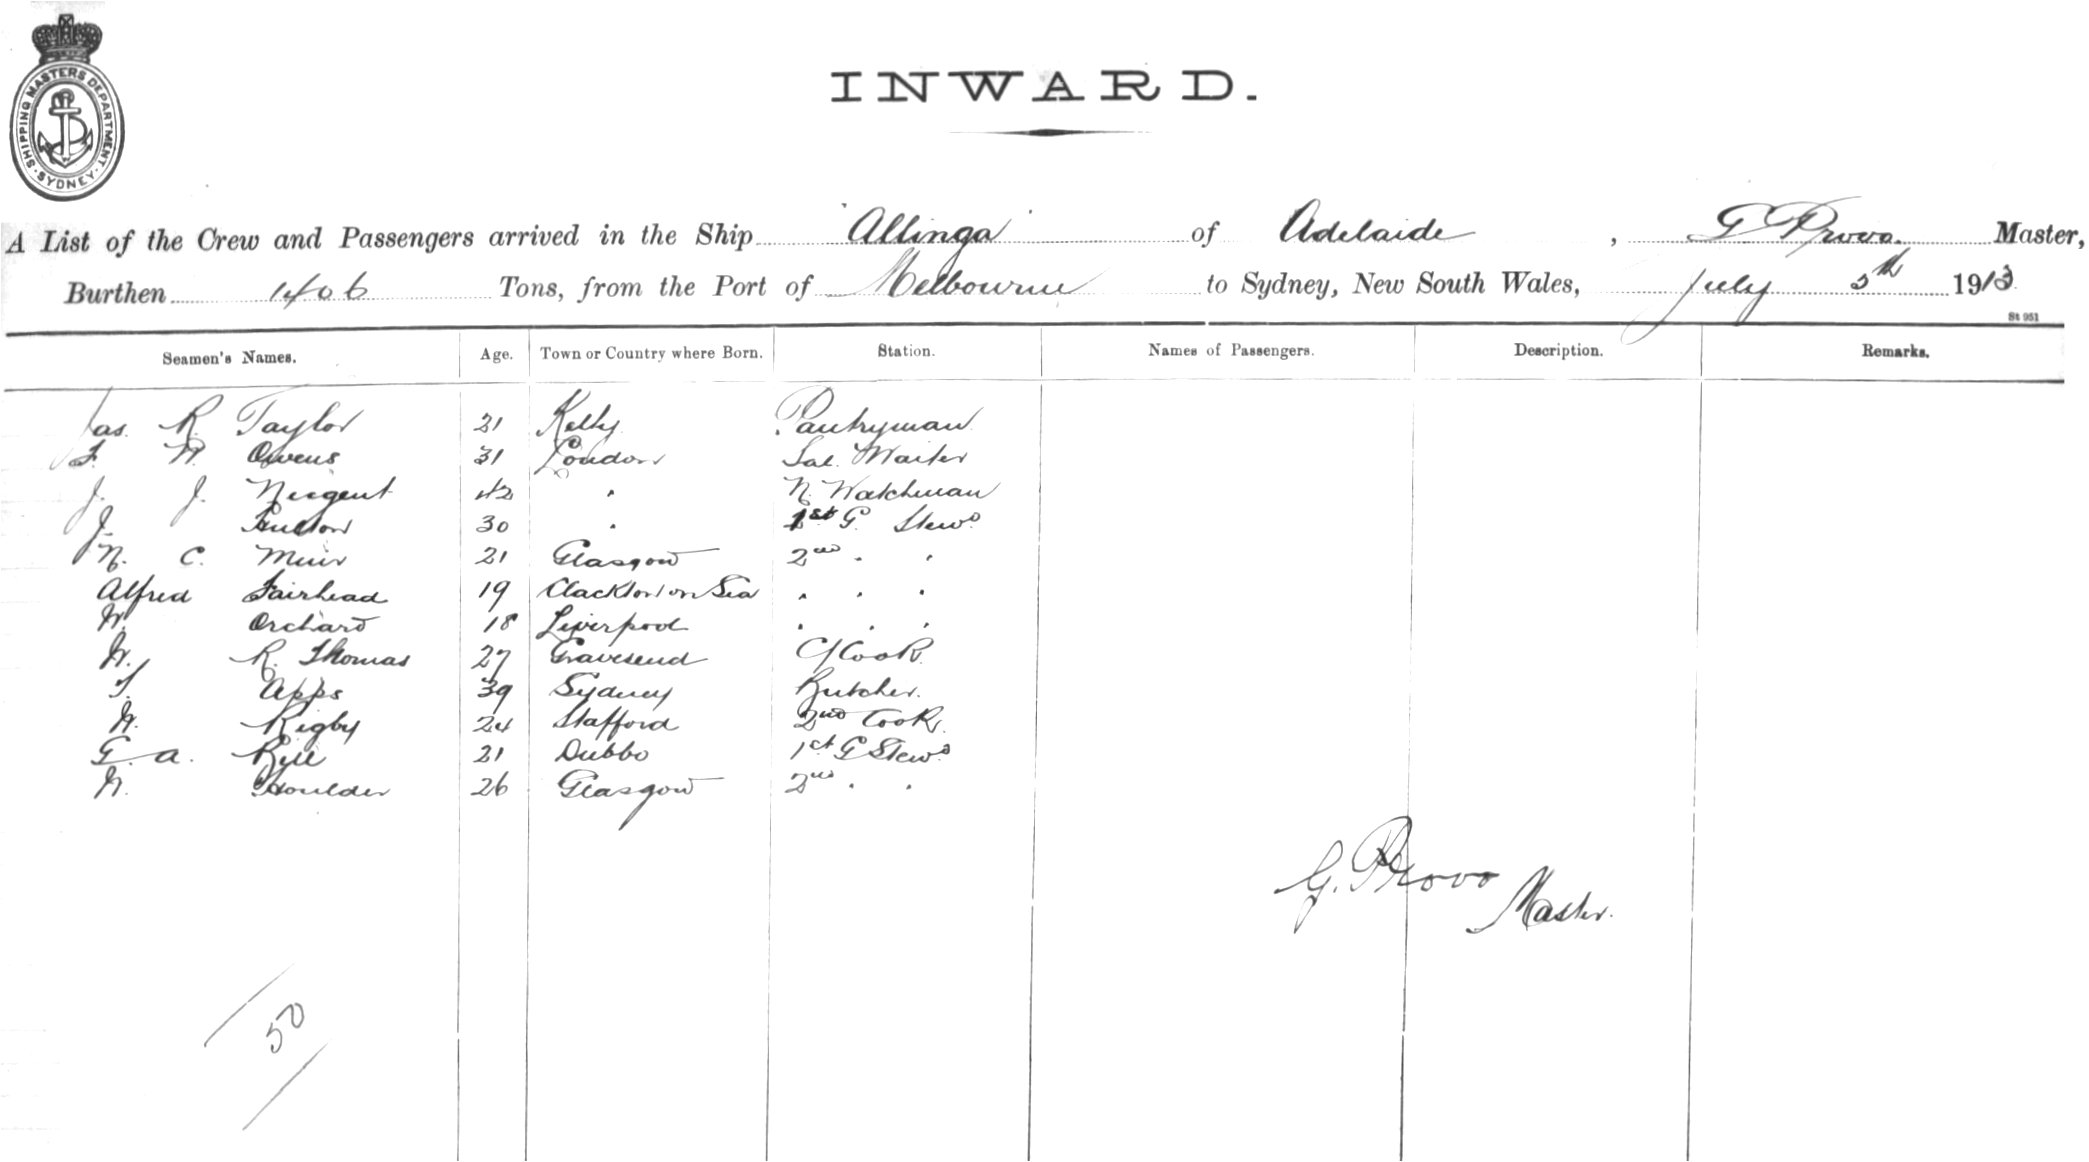 SHIPPING MASTERS DEPARTMENT
SYDNEY
INWARD.
A List of the Crew and Passengers arrived in the Ship "Allinga" of Adelaide, G Provo. Master,
Burthen 1406 Tons, from the Port of Melbourne to Sydney, New South Wales, July 5th 1913
St 951
Seamen's Names. Age. Town or Country where Born. Station. Names of Passengers. Description. Remarks.
Jas. R. Taylor 21 Pantryman
Owens 31 London Sal. Waiter
J. J. Nugent 42 " N. Watchman
J. 30 " 1st G. Stewd
N. C. Muir 21 Glasgow 2nd " "
Alfred Fairhead 19 Clackton on Sea " " "
W. Orchard 18 Liverpool " " "
W. R. Thomas 27 Gravesend C/Cook
T. Apps 39 Sydney Butcher.
W. Rigby 24 Stafford 2nd Cook
G. A. 21 Dubbo 1st G Stewd
W. Houlder 26 Glasgow 2nd " "
G. Provo Master.
50